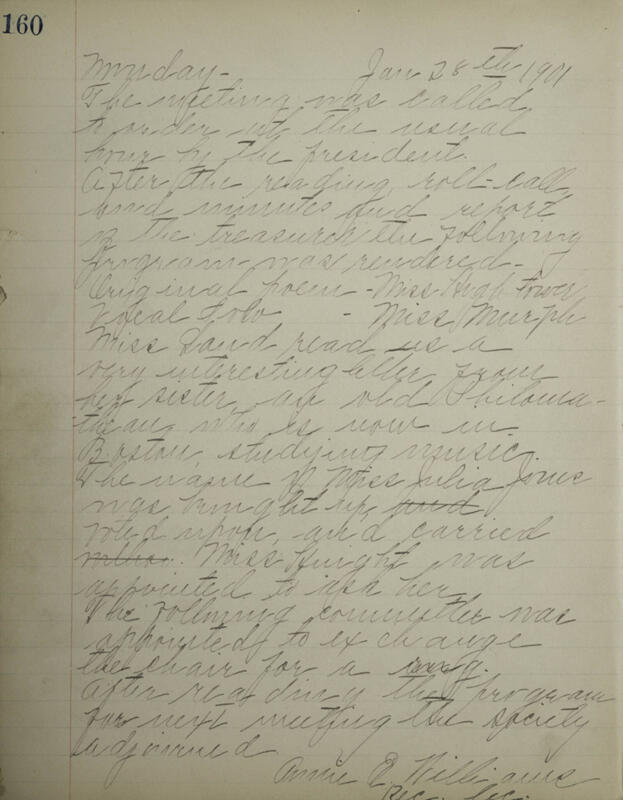 160
Monday - Jan 28th 1901
The meeting was called
to order at the usual
hour by the president.
After the reading, roll-call,
and minutes and report
of the treasurer the following
program was rendered -
Original poem - Miss Hightower
Vocal Solo - Miss Murph
Miss Land read us a
very interesting letter from
her sister, an old Philoma-
thean, who is now in
Boston, studying music.
The name of Miss Julia Jones
was brought up, and
voted upon, and carried
Miss Knight was
appointed to ask her.
The following committee was
appointed to exchange
the chair for a rug.
After reading the program
for next meeting the society
adjourned
Annie E Williams
Rec. Sec.